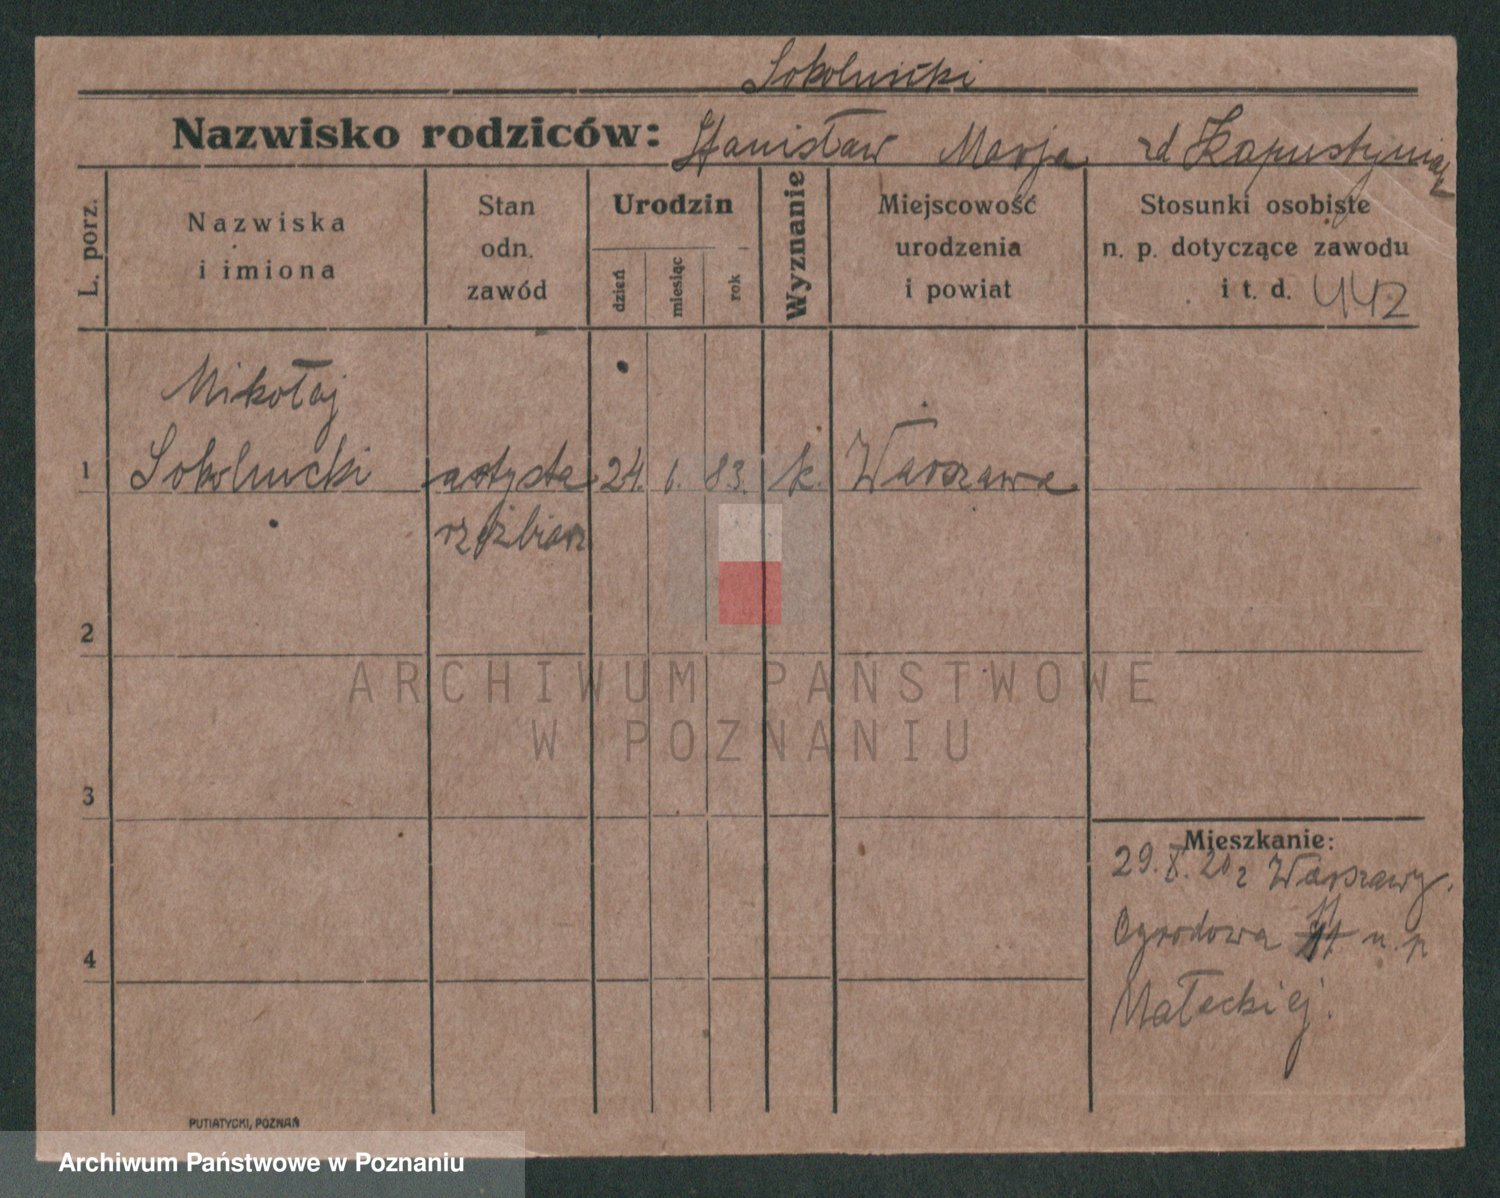 Sokolnicki
Nazwisko rodziców: Stanisław Marja zd
L. porz.
Nazwiska
i imiona
Stan
odn.
zawód
Urodzin
dzień
miesiąc
rok
Wyznanie
Miejscowość
urodzenia
i powiat
Stosunki osobiste
n. p. dotyczące zawodu
i t. d. 442
Mikołaj
1 Sokolnicki artysta 24. 83. k. Warszawa
rzeźbiarz
2
3
4
Mieszkanie:
29. X. 20 z Warszawy.
Ogrodowa 11 u. p
Małeckiej.
PUTIATYCKI, POZNAŃ
ARCHIWUM PAŃSTWOWE
W POZNANIU
Archiwum Państwowe w Poznaniu